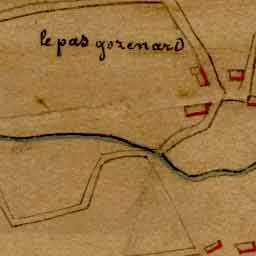 le pas gozenard